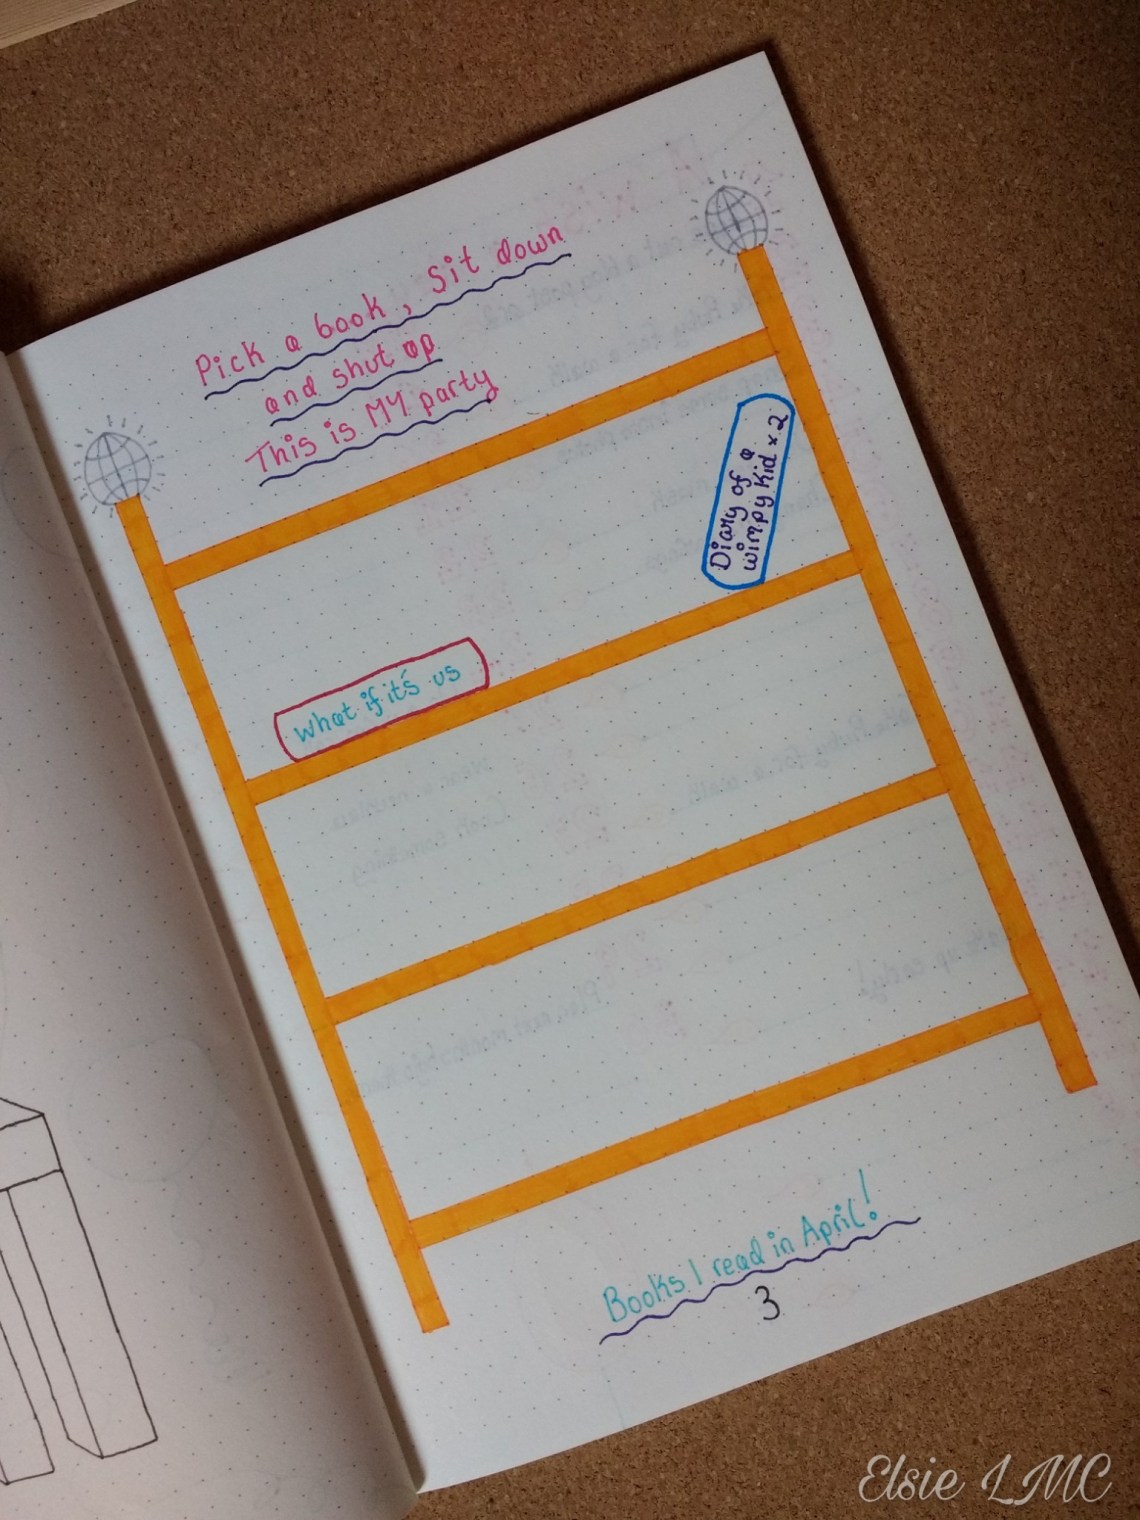 Pick a book, sit down
and shut up
This is MY party
Diary of a
wimpy kid x 2
What if it's us
Books I read in April!
3
Elsie LMC